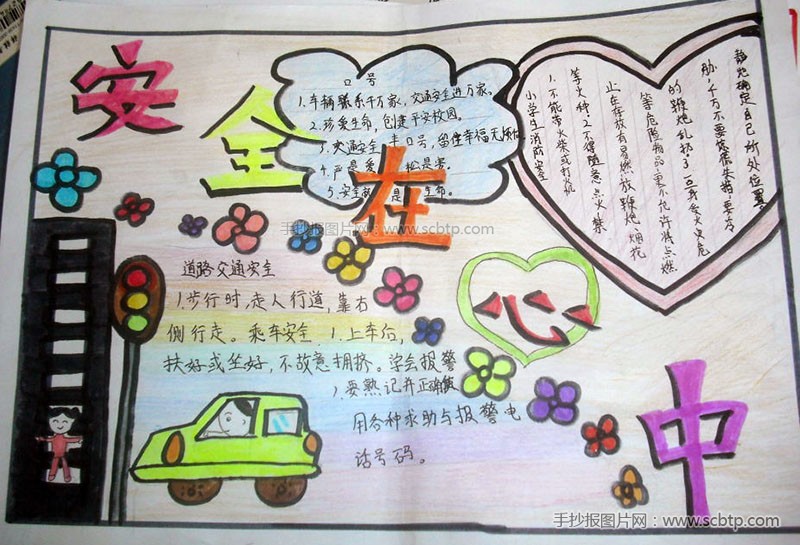 安
全
在
心
中
口号
1.车辆联系千万家、交通安全进万家。
2.珍爱生命,创建平安校园。
3.交通安全 口号,留住幸福无
4.严是爱 松是害。
5.安全 是 生命。
小学生消防安全
1.不能带火柴或打火机
等火种。2不得随意点火 禁
止在存放有易燃放鞭炮、烟花
等危险物品,更不允许将点燃
的鞭炮乱扔了 一旦身受火灾危
胁,千万不要惊慌失措,要冷
静地确定自己所处位置。
道路交通安全
1.步行时,走人行道,靠右
侧行走。乘车安全 1.上车后,
扶好或坐好,不故意拥挤。学会报警
1要熟记并正确使
用各种求助与报警电
话号码。
手抄报图片网:www.scbtp.com
手抄报图片网:www.scbtp.com